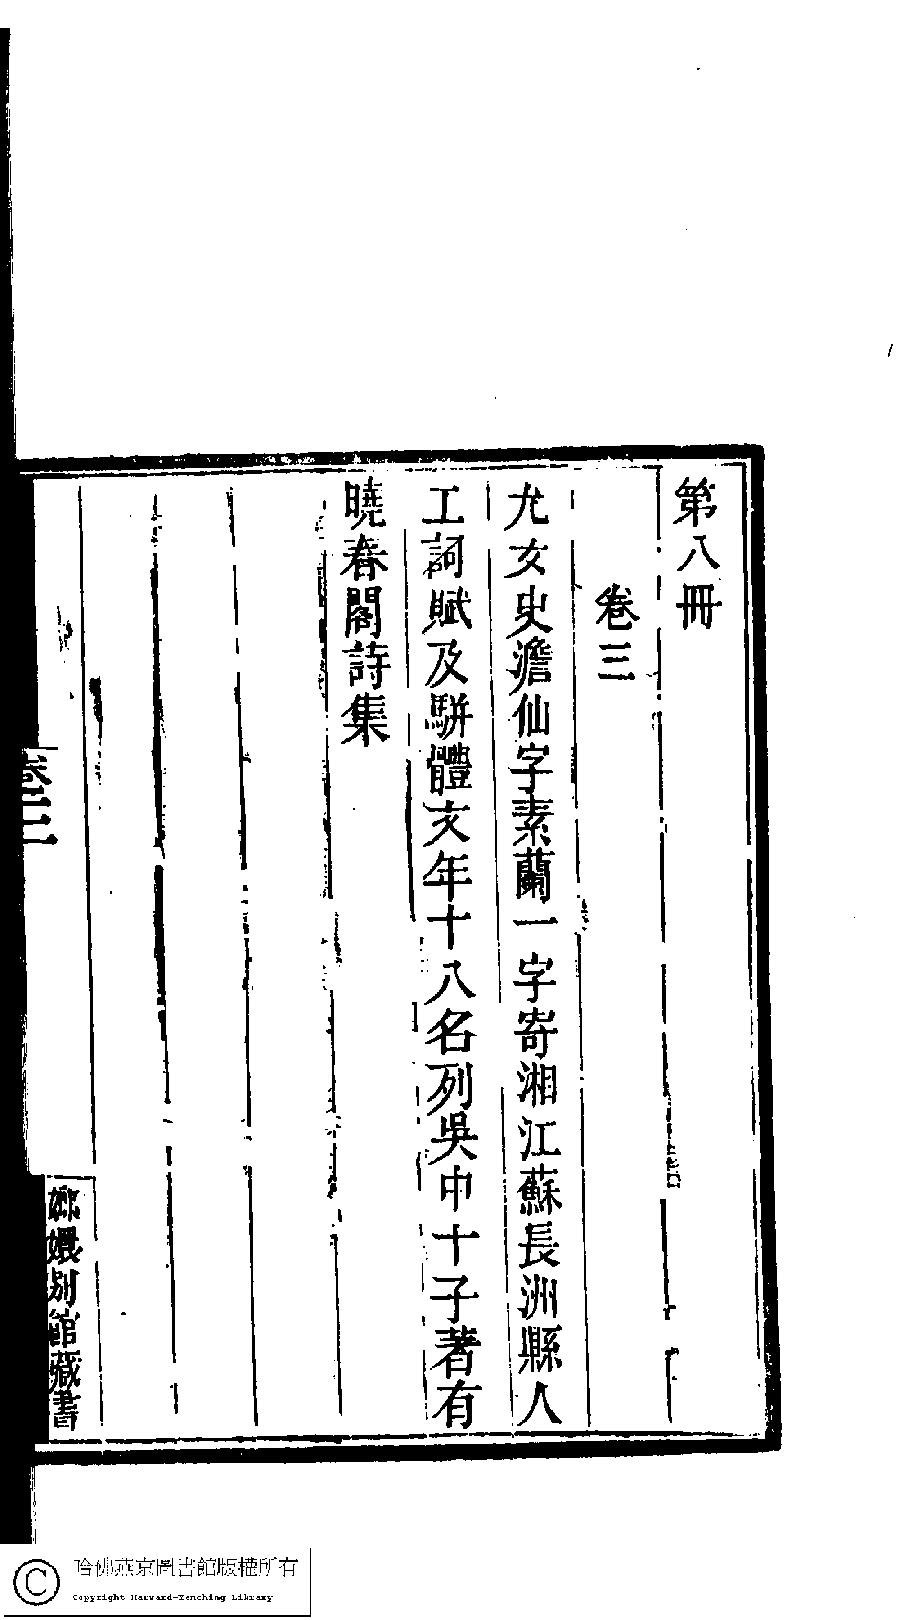 第八冊
卷三
尤女史澹仙字素蘭一字寄湘江蘇長洲縣人
工詞賦及駢體文年十八名列吳中十子著有
曉春閣詩集
卷三
嫏嬛別館藏書
哈佛燕京圖書館版權所有
Copyright Harvard-Yenching Library